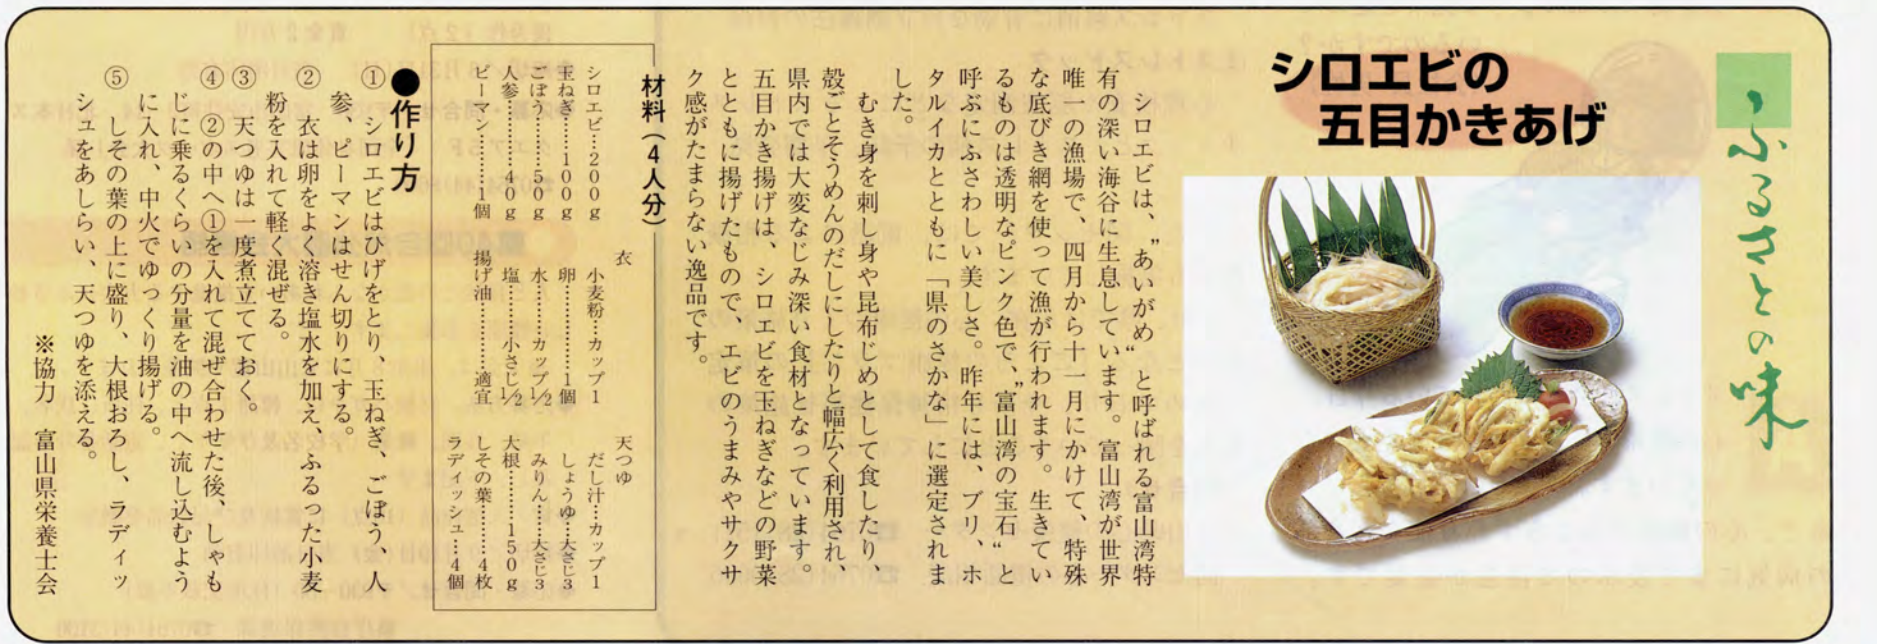 ふるさとの味
シロエビの
五目かきあげ
シロエビは、〝あいがめ〟と呼ばれる富山湾特
有の深い海谷に生息しています。富山湾が世界
唯一の漁場で、四月から十一月にかけて、特殊
な底びき網を使って漁が行われます。生きてい
るものは透明なピンク色で、〝富山湾の宝石〟と
呼ぶにふさわしい美しさ。昨年には、ブリ、ホ
タルイカとともに「県のさかな」に選定されま
した。
むき身を刺し身や昆布じめにして食したり、
殻ごとそうめんのだしにしたりと幅広く利用され、
県内では大変なじみ深い食材となっています。
五目かき揚げは、シロエビを玉ねぎなどの野菜
とともに揚げたもので、エビのうまみやサクサ
ク感がたまらない逸品です。
材料(4人分)
シロエビ…200g
玉ねぎ………100g
ごぼう…………50g
人参……………40g
ピーマン………1個
衣
小麦粉…カップ1
卵……………1個
水……カップ1/2
塩……小さじ1/2
揚げ油………適宜
天つゆ
だし汁…カップ1
しょうゆ…大さじ3
みりん…大さじ3
大根…………150g
しその葉………4枚
ラディッシュ…4個
●作り方
① シロエビはひげをとり、玉ねぎ、ごぼう、人
参、ピーマンはせん切りにする。
② 衣は卵をよく溶き塩水を加え、ふるった小麦
粉を入れて軽く混ぜる。
③ 天つゆは一度煮立てておく。
④ ②の中へ①を入れて混ぜ合わせた後、しゃも
じに乗るくらいの分量を油の中へ流し込むよう
に入れ、中火でゆっくり揚げる。
⑤ しその葉の上に盛り、大根おろし、ラディッ
シュをあしらい、天つゆを添える。
※協力 富山県栄養士会